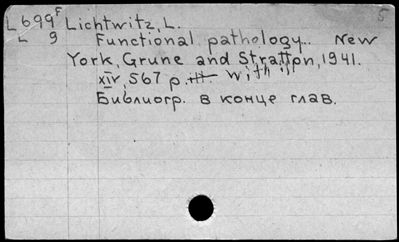 L699F Lichtwitz, L. 5
L 9 Functional pathology. New
York, Grune and Stratton, 1941.
XIV, 567 p. ill. with ill
Библиогр. в конце глав.